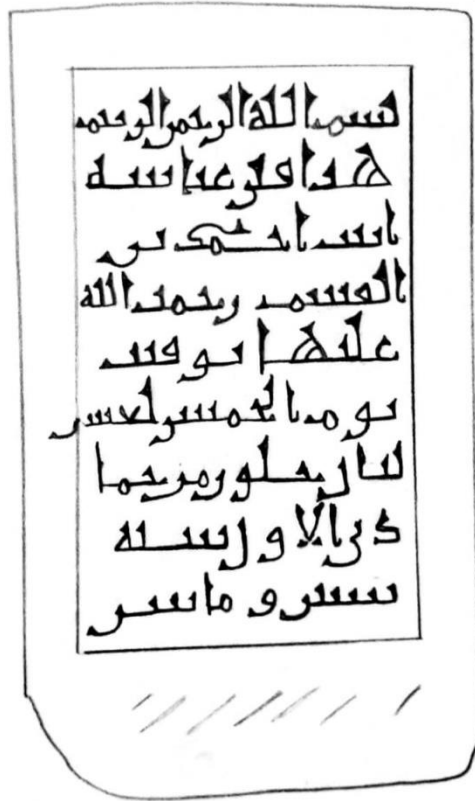 بسم الله الرحمن الرحيم
هذا قبر عباسة
ابنت احمد بن
القسم رحمت الله
عليها توفيت
يوم الخميس لعشر
ليال خلون من جما
دى الاول سنة
ستين و ماتين